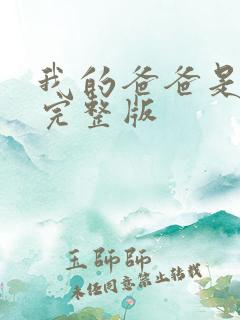 我的爸爸是
完整版
王師師
未经同意禁止转载